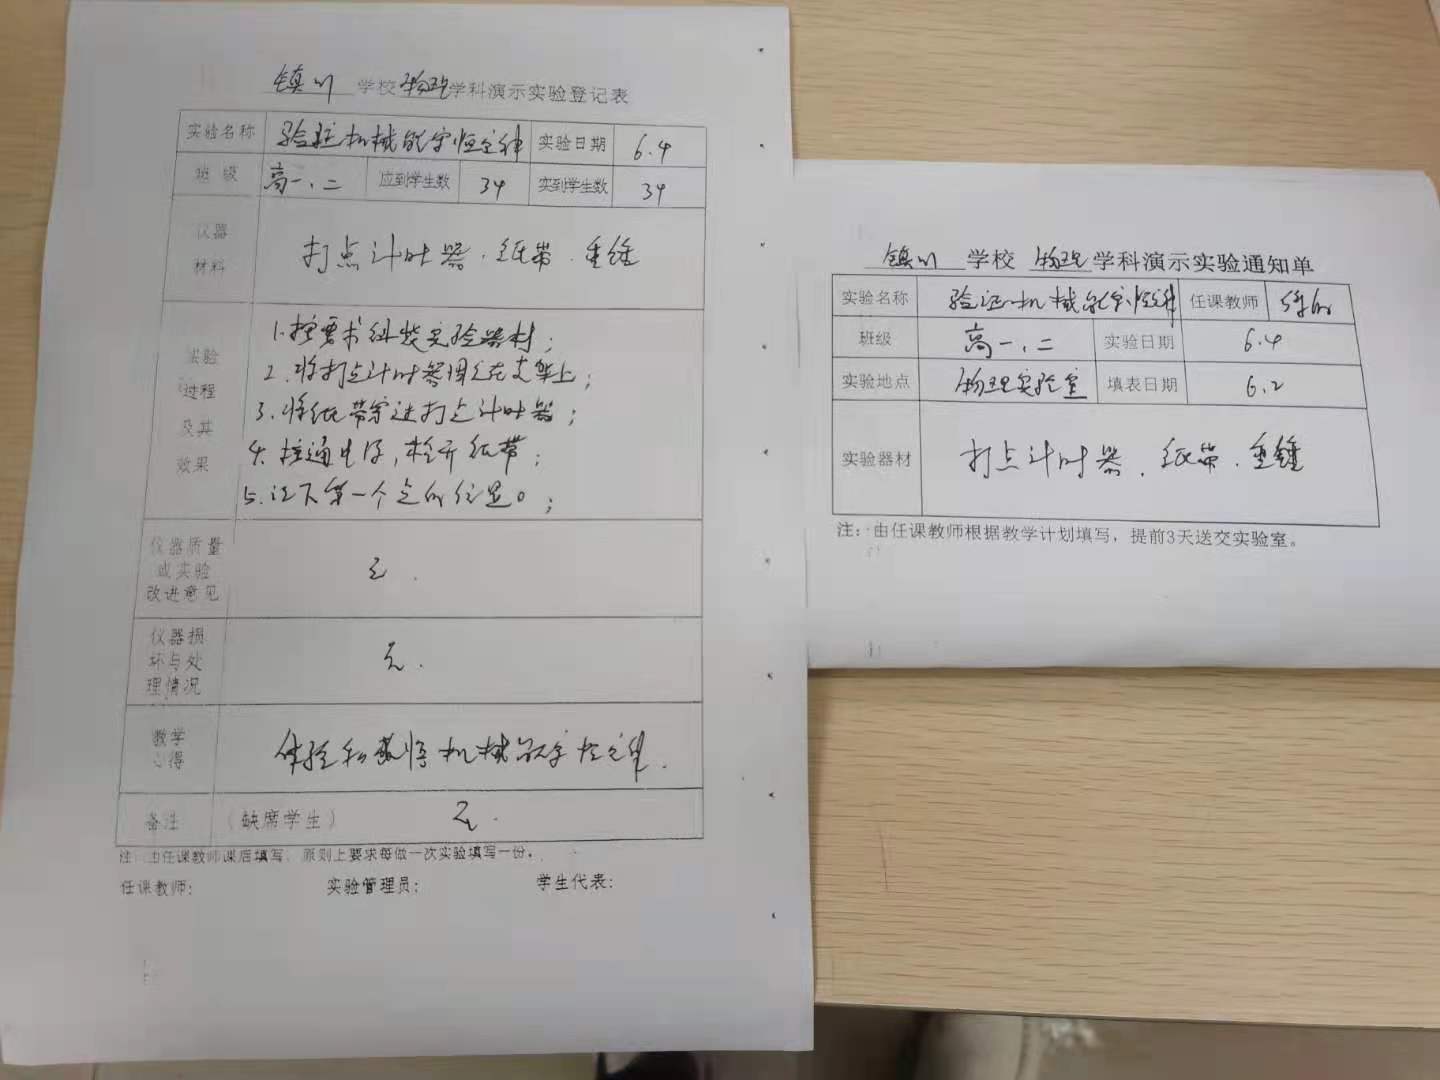 镇川 学校 物理 学科演示实验登记表
实验名称 验证机械能守恒定律 实验日期 6.4
班 级 高一、二 应到学生数 34 实到学生数 34
仪器
材料
打点计时器、纸带、重锤
实验
过程
及其
效果
1.按要求组装实验器材；
2.将打点计时器固定在支架上；
3.将纸带穿过打点计时器；
4.接通电源，松开纸带；
5.记下第一个点的位置0；
仪器质量
或实验
改进意见
无.
仪器损
坏与处
理情况
无.
教学
心得
体验和感悟机械能守恒定律.
备注 （缺席学生） 无.
注：由任课教师课后填写，原则上要求每做一次实验填写一份。
任课教师: 实验管理员: 学生代表:
镇川 学校 物理 学科演示实验通知单
实验名称 验证机械能守恒定律 任课教师
班级 高一、二 实验日期 6.4
实验地点 物理实验室 填表日期 6.2
实验器材 打点计时器、纸带、重锤
注：由任课教师根据教学计划填写，提前3天送交实验室。